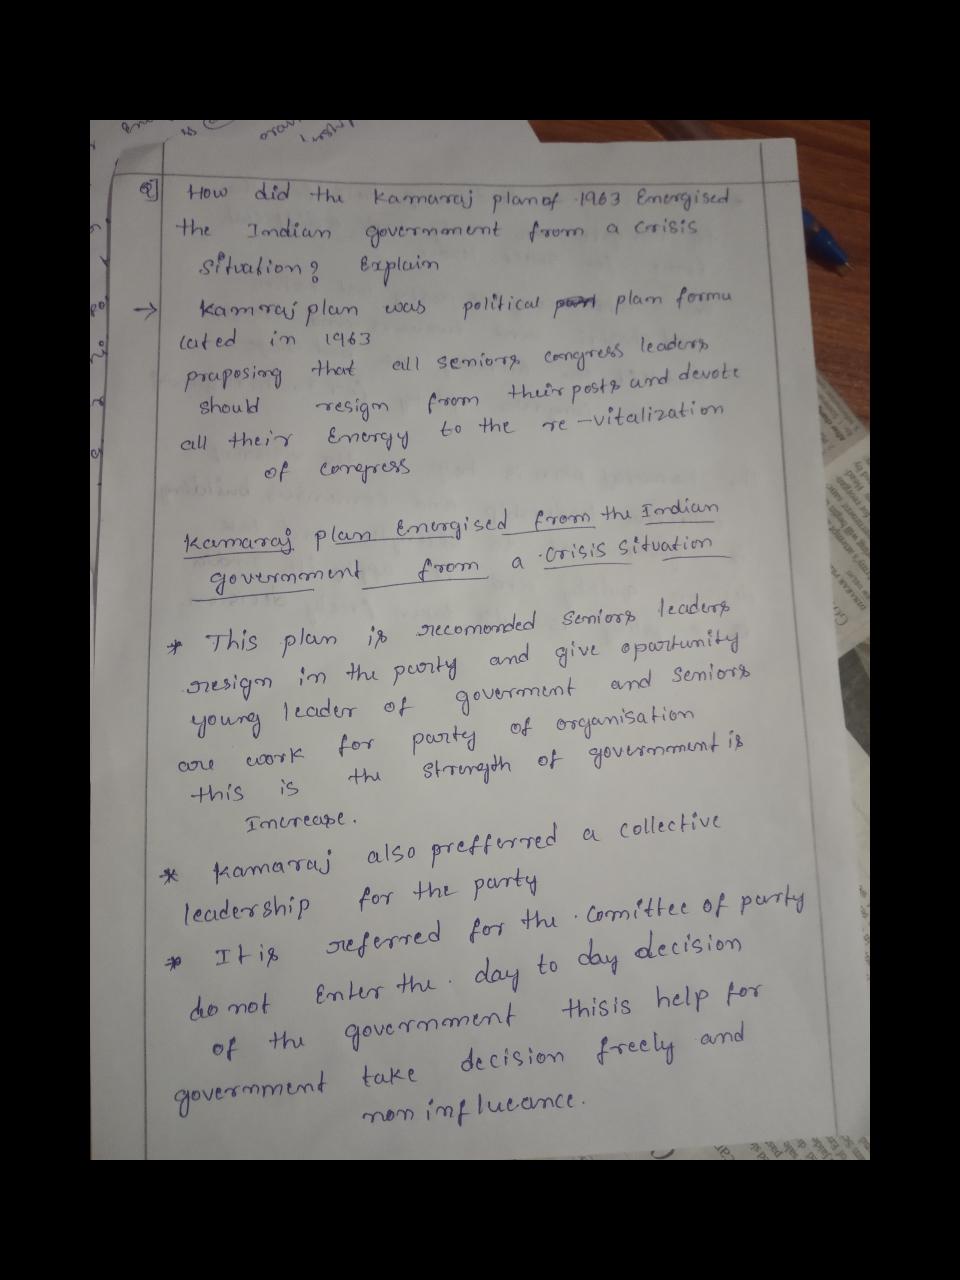 Q] How did the Kamaraj plan of 1963 Energised
the Indian government from a Crisis
Situation? Explain
→ Kamraj plan was political plan formu
lated in 1963
praposing that all seniors congress leaders
should resign from their posts and devote
all their Energy to the re-vitalization
of congress
Kamaraj plan Energised from the Indian
government from a Crisis Situation
* This plan is recomonded seniors leaders
resign in the party and give oportunity
young leader of goverment and seniors
are work for party of organisation
this is the strength of government is
Increase.
* Kamaraj also prefferred a collective
leadership for the party
* It is referred for the Comittee of party
do not Enter the day to day decision
of the government this is help for
government take decision freely and
non influeance.